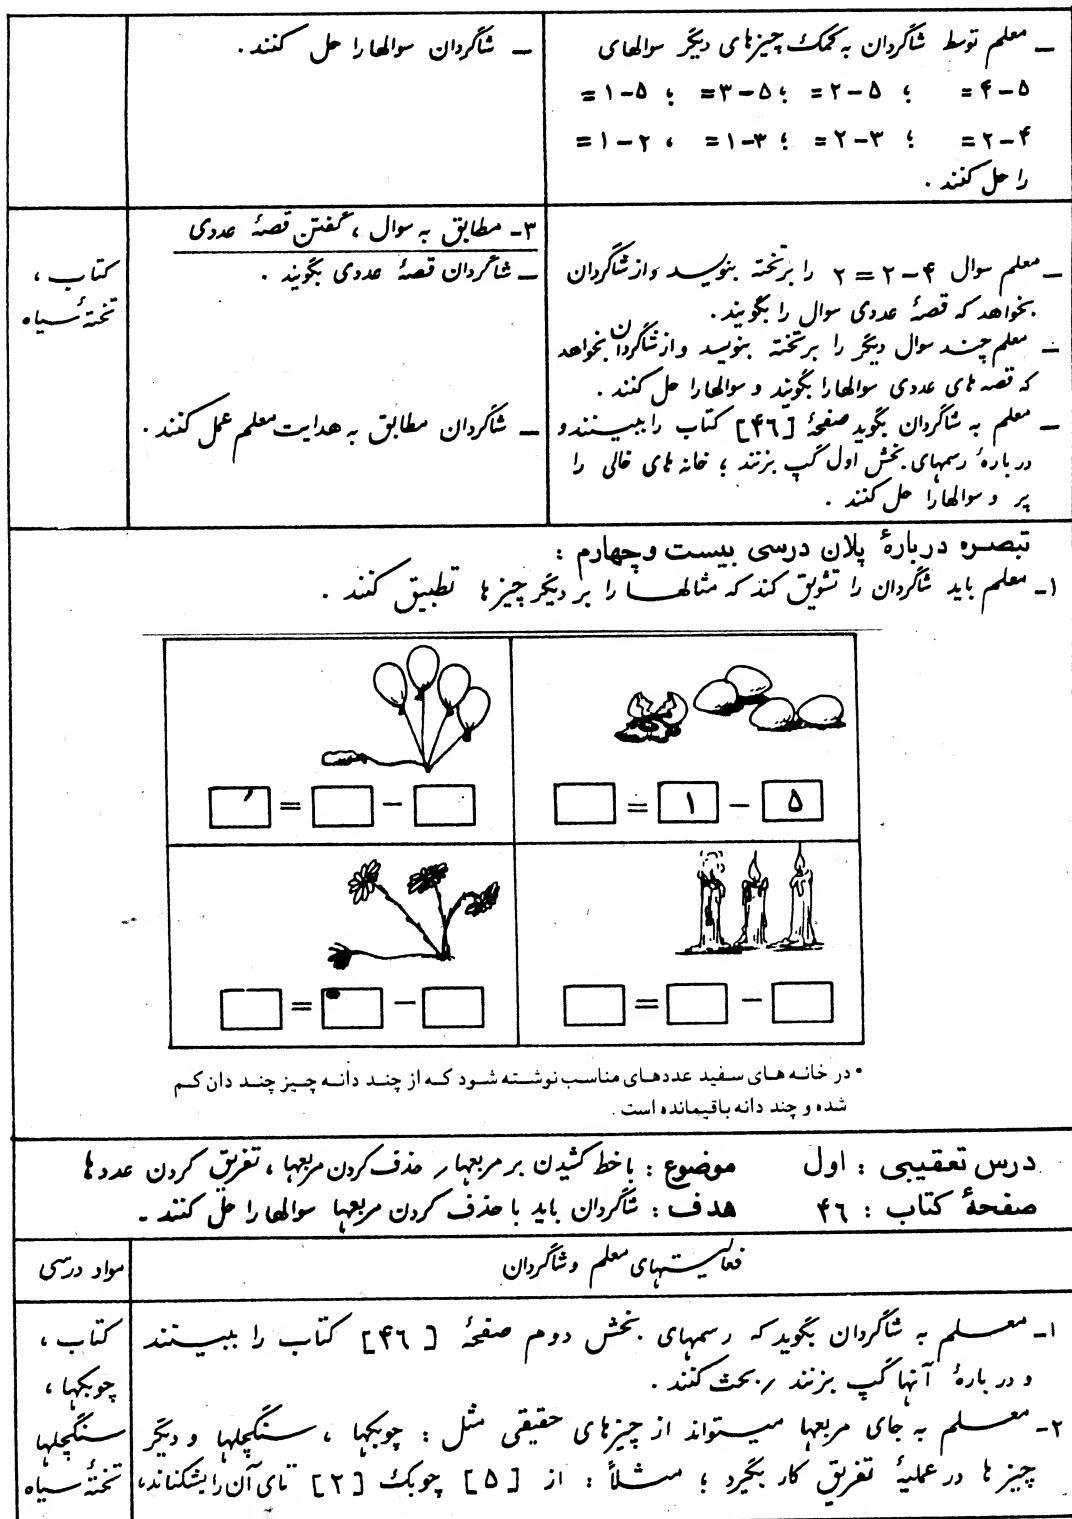 ـ معلم توسط شاگردان به کمک چیزهای دیگر سوالهای
۵-۴= ؛ ۵-۲= ؛ ۵-۳= ؛ ۵-۱=
۴-۲= ؛ ۳-۲= ؛ ۳-۱= ، ۲-۱=
را حل کنند .
ـ شاگردان سوالها را حل کنند .
۳- مطابق به سوال ، گفتن قصهٔ عددی
ـ معلم سوال ۴-۲=۲ را بر تخته بنویسد و از شاگردان
بخواهد که قصهٔ عددی سوال را بگویند .
ـ معلم چند سوال دیگر را بر تخته بنویسد و از شاگردان بخواهد
که قصه های عددی سوالها را بگویند و سوالها را حل کنند .
ـ معلم به شاگردان بگوید صفحهٔ [۴۶] کتاب را ببینند و
در بارهٔ رسمهای بخش اول گپ بزنند ؛ خانه های خالی را
پر و سوالها را حل کنند .
ـ شاگردان قصهٔ عددی بگویند .
ـ شاگردان مطابق به هدایت معلم عمل کنند .
کتاب ،
تختهٔ سیاه
تبصره دربارهٔ پلان درسی بیست و چهارم :
۱- معلم باید شاگردان را تشویق کند که مثالها را بر دیگر چیزها تطبیق کنند .
۵ - ۱ =
- =
- =
- =
• در خانه های سفید عددهای مناسب نوشته شود که از چند دانه چیز چند دان کم
شده و چند دانه باقیمانده است .
درس تعقیبی : اول موضوع : با خط کشیدن بر مربعها / حذف کردن مربعها ، تفریق کردن عددها
صفحهٔ کتاب : ۴۶ هدف : شاگردان باید با حذف کردن مربعها سوالها را حل کنند .
فعالیتهای معلم و شاگردان
مواد درسی
۱- معلم به شاگردان بگوید که رسمهای بخش دوم صفحهٔ [۴۶] کتاب را ببینند
و در بارهٔ آنها گپ بزنند / بحث کنند .
۲- معلم به جای مربعها میتواند از چیزهای حقیقی مثل : چوبکها ، سنگچلها و دیگر
چیزها در عملیهٔ تفریق کار بگیرد ؛ مثلاً : از [۵] چوبک [۲] تای آن را بشکناند،
کتاب ،
چوبکها ،
سنگچلها
تختهٔ سیاه